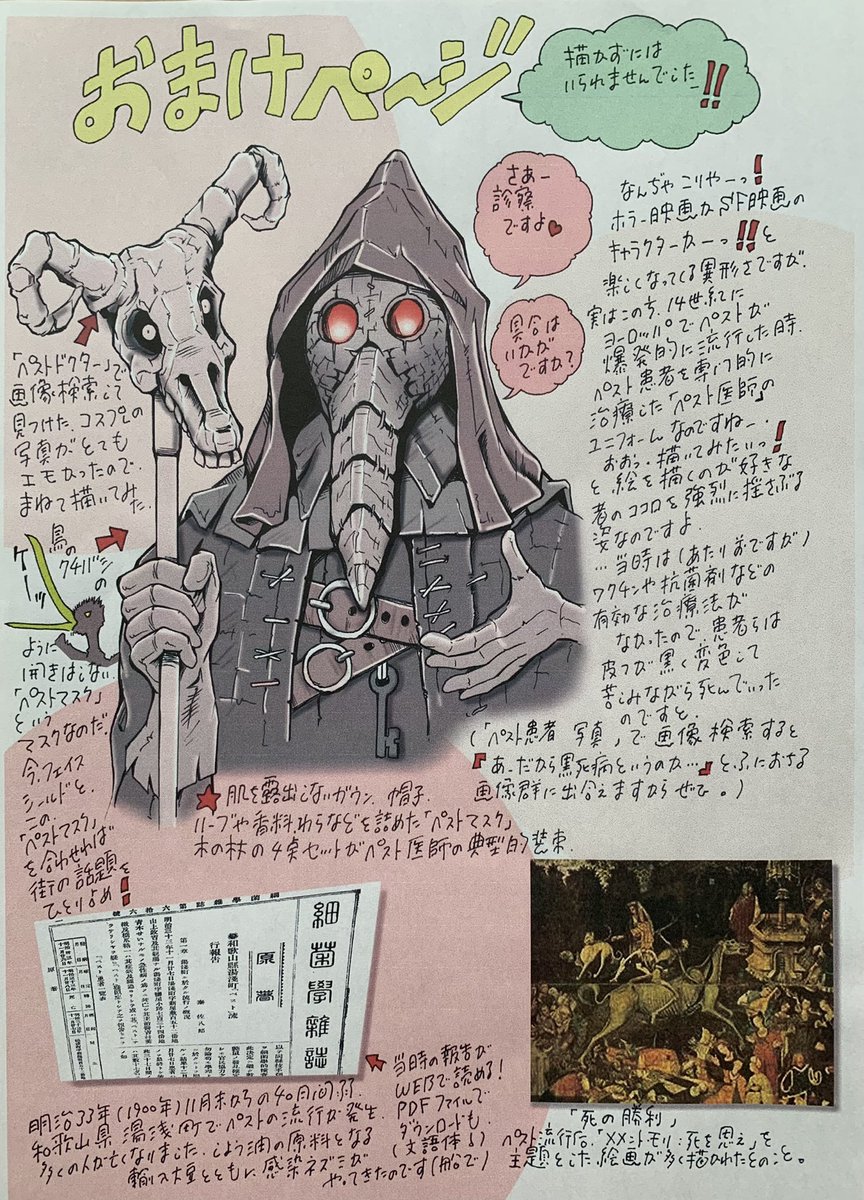 おまけページ
描かずには
いられませんでした!!
さあー
診察
ですよ♥
具合は
いかが
ですか?
なんぢゃこりゃーっ!
ホラー映画かSF映画の
キャラクターかーっ!!と
楽しくなってくる異形さですが、
実はこの方、14世紀に
ヨーロッパでペストが
爆発的に流行した時、
ペスト患者を専門的に
治療した「ペスト医師」の
ユニフォームなのですねー・
おおっ・描いてみたいっ!
と絵を描くのが好きな
者のココロを強烈に揺さぶる
姿なのですよ.
…当時は(あたりまえですが)
ワクチンや抗菌剤などの
有効な治療法が
なかったので、患者らは
皮フが黒く変色して
苦しみながら死んでいった
のですと、
(「ペスト患者 写真」で画像検索すると
『あ、だから黒死病というのか…』とふにおちる
画像群に出合えますからぜひ。)
「ペストドクター」で
画像検索して
見つけた、コスプレの
写真がとても
エモかったので、
まねて描いてみた.
鳥の
クチバシの
ケーッ
ように
開きはしない.
「ペストマスク」
という
マスクなのだ.
今、フェイス
シールドと、
この、
「ペストマスク」
を合わせれば
街の話題を
ひとりじめ!
★肌を露出しないガウン、帽子.
ハーブや香料、わらなどを詰めた「ペストマスク」
木の杖の4点セットがペスト医師の典型的装束.
細菌學雜誌
原著
和歌山縣湯淺町「ペスト」流
行報告
秦佐八郎
当時の報告が
WEBで読める!
PDFファイルで
ダウンロードも、
(文語体よ)
明治33年(1900年)11月末からの40日間弱.
和歌山県湯浅町でペストの流行が発生.
多くの人が亡くなりました. しょう油の原料となる
輸入大豆とともに、感染ネズミが
やってきたのです(船で)
「死の勝利」
ペスト流行后、「メメント・モリ:死を思え」を
主題とした絵画が多く描かれたとのこと。